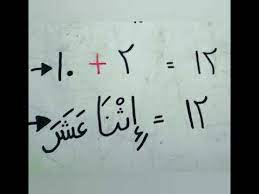 → ١٠ + ٢ = ١٢
→ إِثْنَا عَشَرَ = ١٢